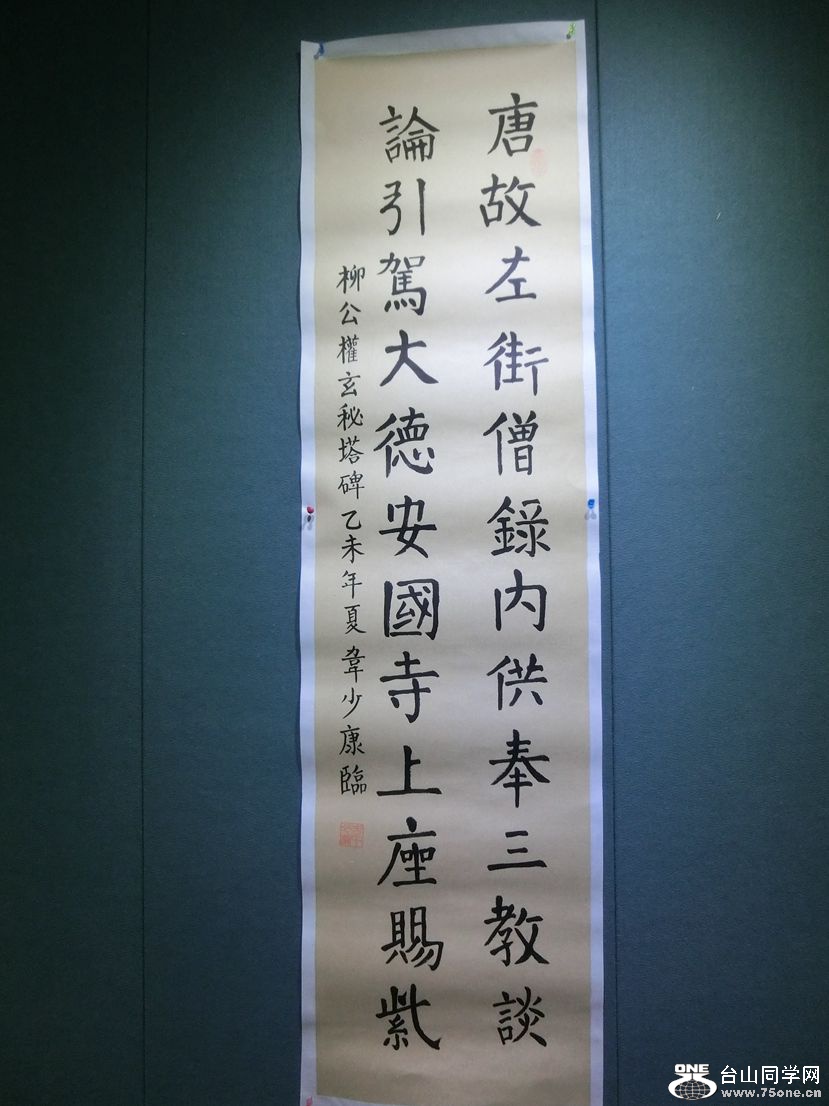 唐故左街僧錄内供奉三教談
論引駕大德安國寺上座賜紫
柳公權玄秘塔碑乙未年夏韋少康臨
ONE
台山同学网
www.75one.cn